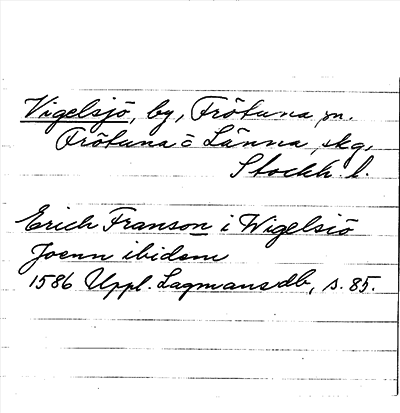 Vigelsjö, by, Frötuna sn.
Frötuna o Länna skg,
Stockh. l.
Erich Franson i Wigelsiö
Joenn ibidem
1586 Uppl. Lagmansdb, s. 85.